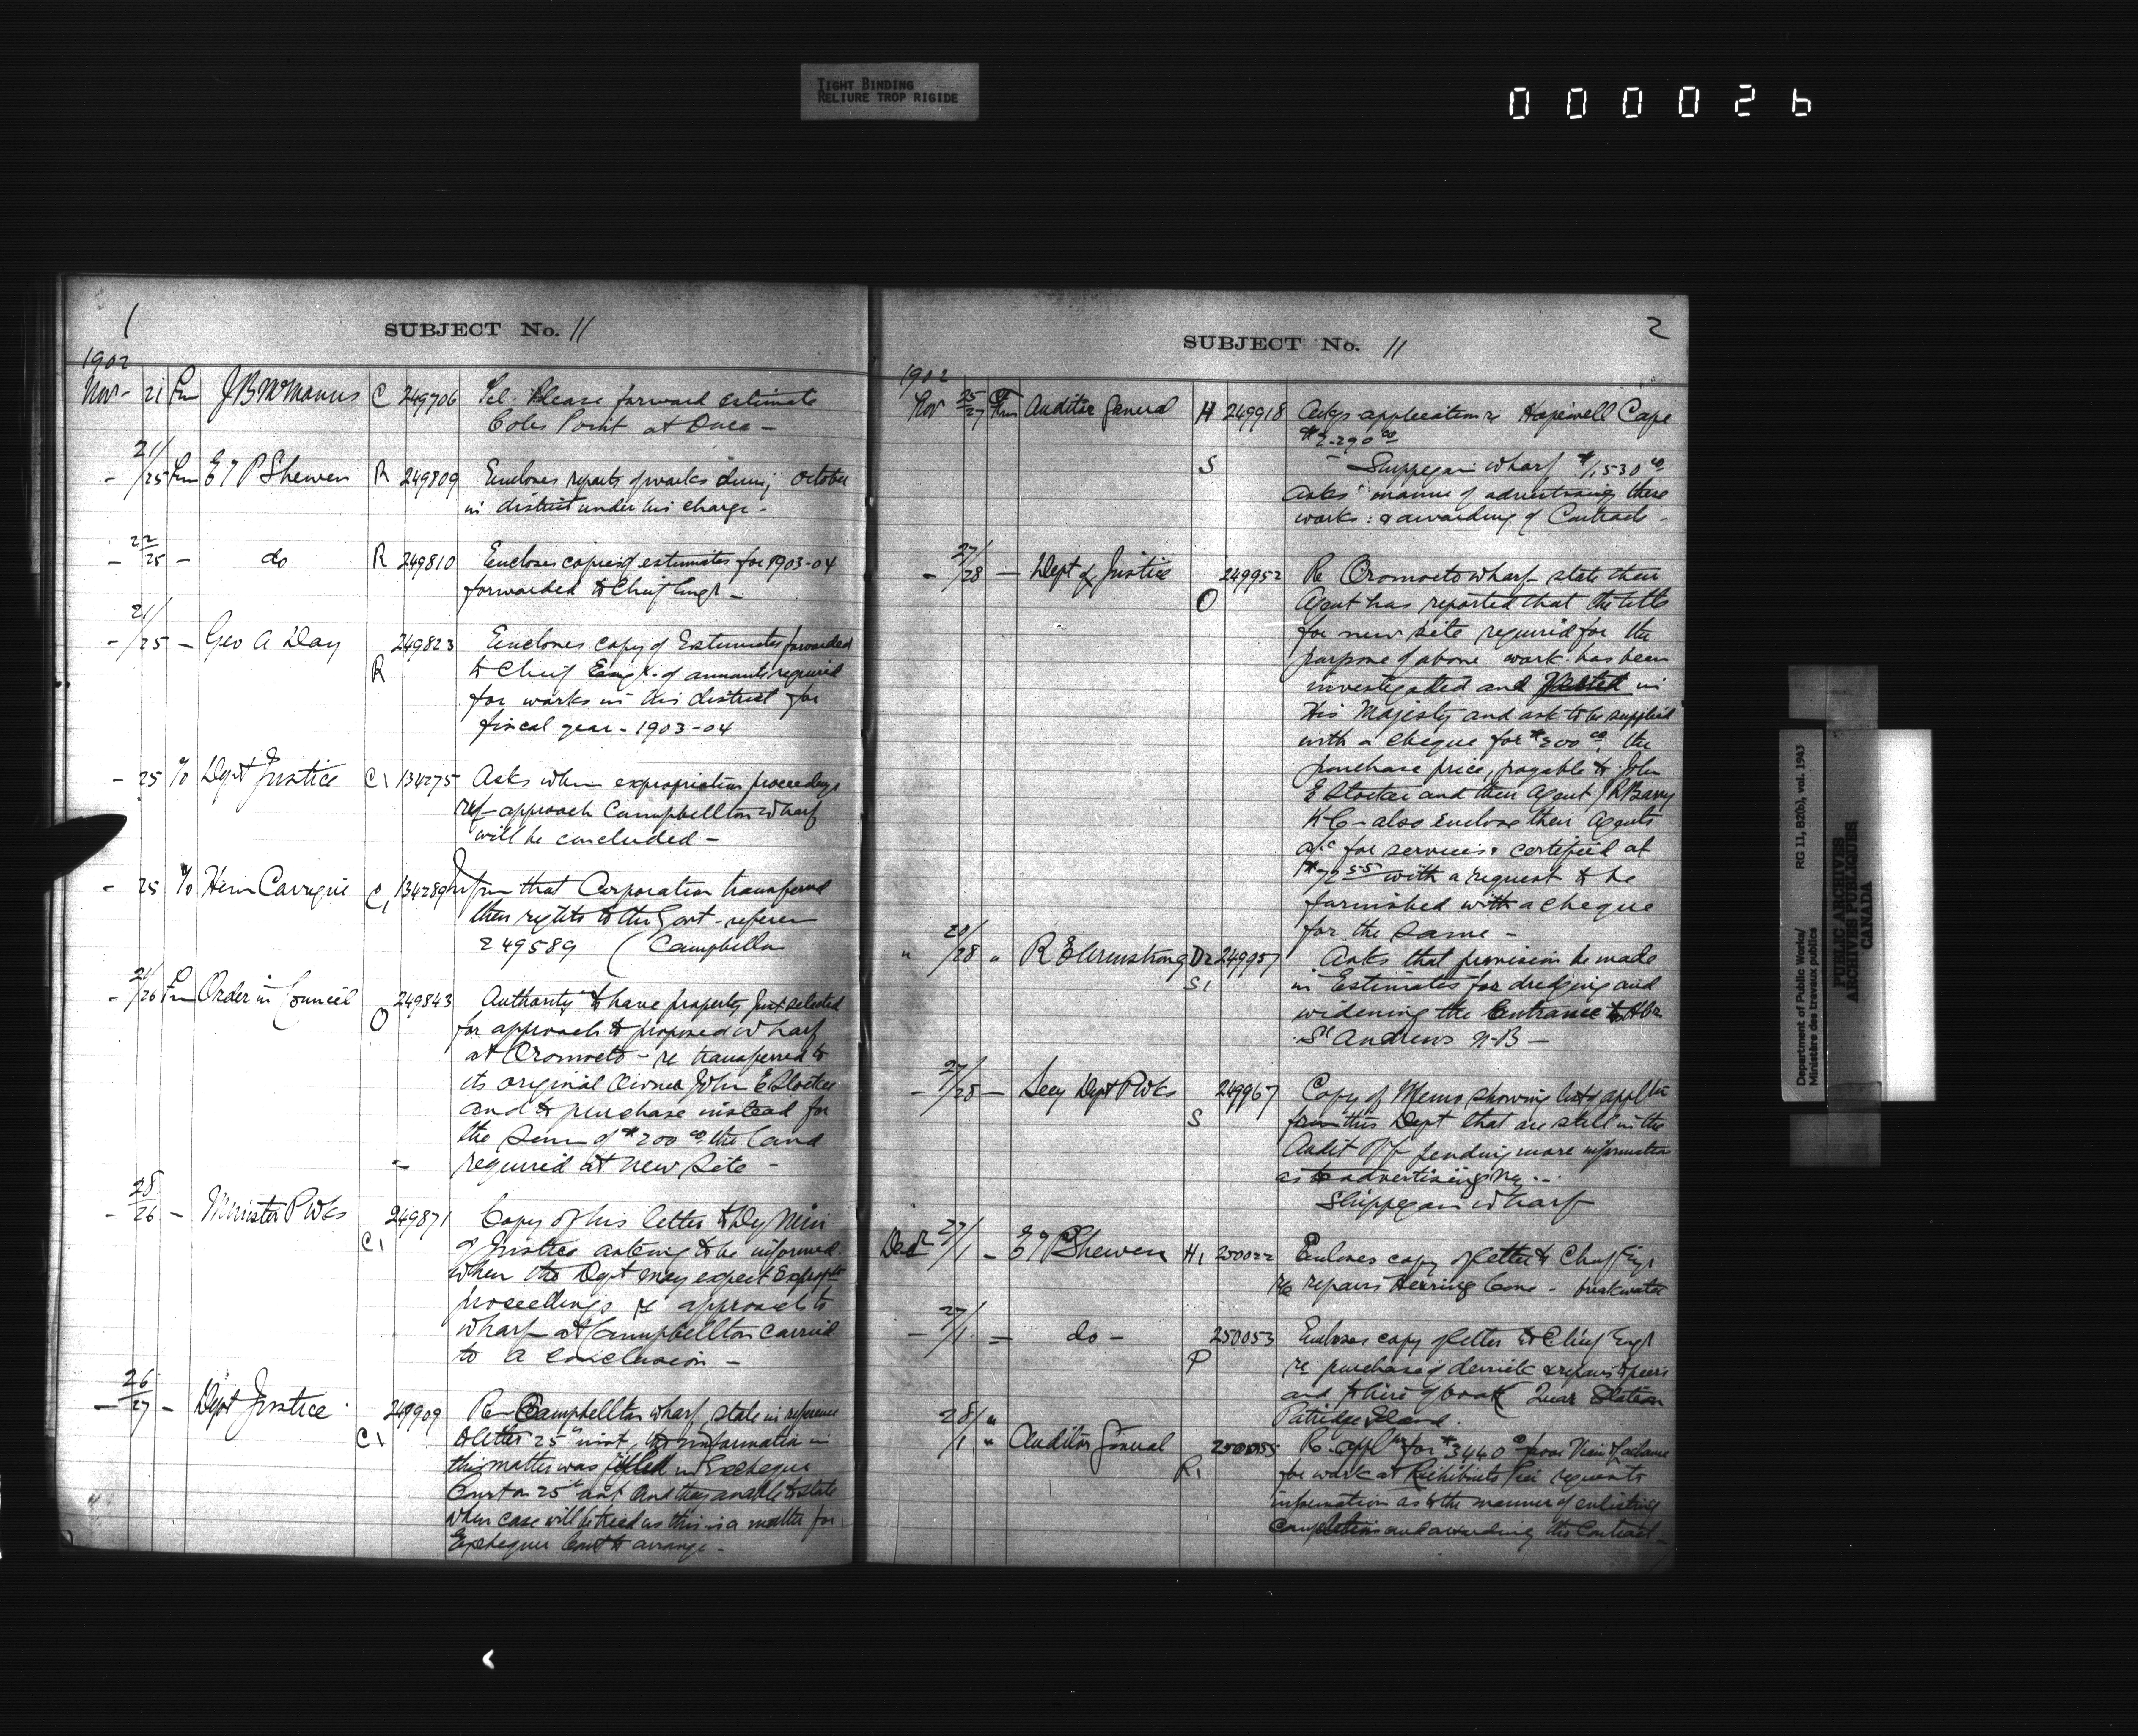 TIGHT BINDING
RELIURE TROP RIGIDE
000026
1
SUBJECT No. 11
1902
Nov - 21 Fm J B McManus C 249706 Tel - Please forward estimate
Coles Point at Once -
- 21/25 Fm E T P Shewen R 249809 Encloses reports of works during October
in district under his charge -
- 22/25 - do R 249810 Encloses copies of estimates for 1903-04
forwarded to Chief Engr -
- 21/25 - Geo A Day R 249823 Encloses copy of Estimates forwarded
to Chief Engr. of amounts required
for works in this district for
fiscal year - 1903-04
- 25 To Dept Justice C1 134275 Asks when expropriation proceedings
ref - approach Campbellton Wharf
will be concluded -
- 25 To C1 134289 Inform that Corporation transferred
their rights to the Govt - refer
249589 ( Campbellton
- 21/26 Fm Order in Council O 249843 Authority to have property first selected
for approach to proposed wharf
at Oromocto - re transferred to
its original Owner John E Stocker
and to purchase instead for
the Sum of $200 00 the land
required at new Site -
- 28/26 - Minister P Wks C1 249871 Copy of his letter to Dy Min
of Justice asking to be informed
when the Dept may expect Exproptn
proceedings re approach to
wharf at Campbellton carried
to a conclusion -
- 26/27 - Dept Justice C1 249909 Re Campbellton wharf, state in reference
to letter 25th inst, that information in
this matter was filed in Exchequer
Court on 25th inst and they unable to state
when case will be tried as this is a matter for
Exchequer Court to arrange -
2
SUBJECT No. 11
1902
Nov 25/27 Fm Auditor General H 249918 Asks application re Hopewell Cape
$2.290 00
S - Shippegan wharf $1,530 00
Asks manner of advertising these
works : & awarding of Contracts -
- 27/28 - Dept of Justice O 249952 Re Oromocto wharf - state their
Agent has reported that the title
for new site required for the
purpose of above work has been
investigated and vested in
His Majesty and ask to be supplied
with a cheque for $200 00, the
purchase price, payable to John
E Stocker and their Agent J R Barry
K C - also enclose their Agents
a/c for services certified at
$72 55 with a request to be
furnished with a cheque
for the Same -
" 20/28 " R E Armstrong D2 249957 Asks that provision be made
S1 in Estimates for dredging and
widening the Entrance to Hbr
St Andrews N-B -
- 27/28 - Secy Dept P Wks S 249967 Copy of Memo showing list of appltn
from this Dept that are still in the
Audit Off pending more information
as to advertising re --
Shippegan Wharf
Decr 27/1 - E T P Shewen H1 250022 Encloses copy of letter to Chief Engr
re repairs Herring Cove - breakwater
- 27/1 - do - P 250053 Encloses copy of letter to Chief Engr
re purchase of derrick & repairs to piers
and to hire of boat Quar Station
Patridge Island.
28/1 " Auditor General R1 250055 Re appln for $3440 00
for work at Richibucto Pier requests
information as to the manner of
and awarding the Contract -
Department of Public Works/
Ministère des travaux publics
RG 11, B2(b), vol. 1943
PUBLIC ARCHIVES
ARCHIVES PUBLIQUES
CANADA